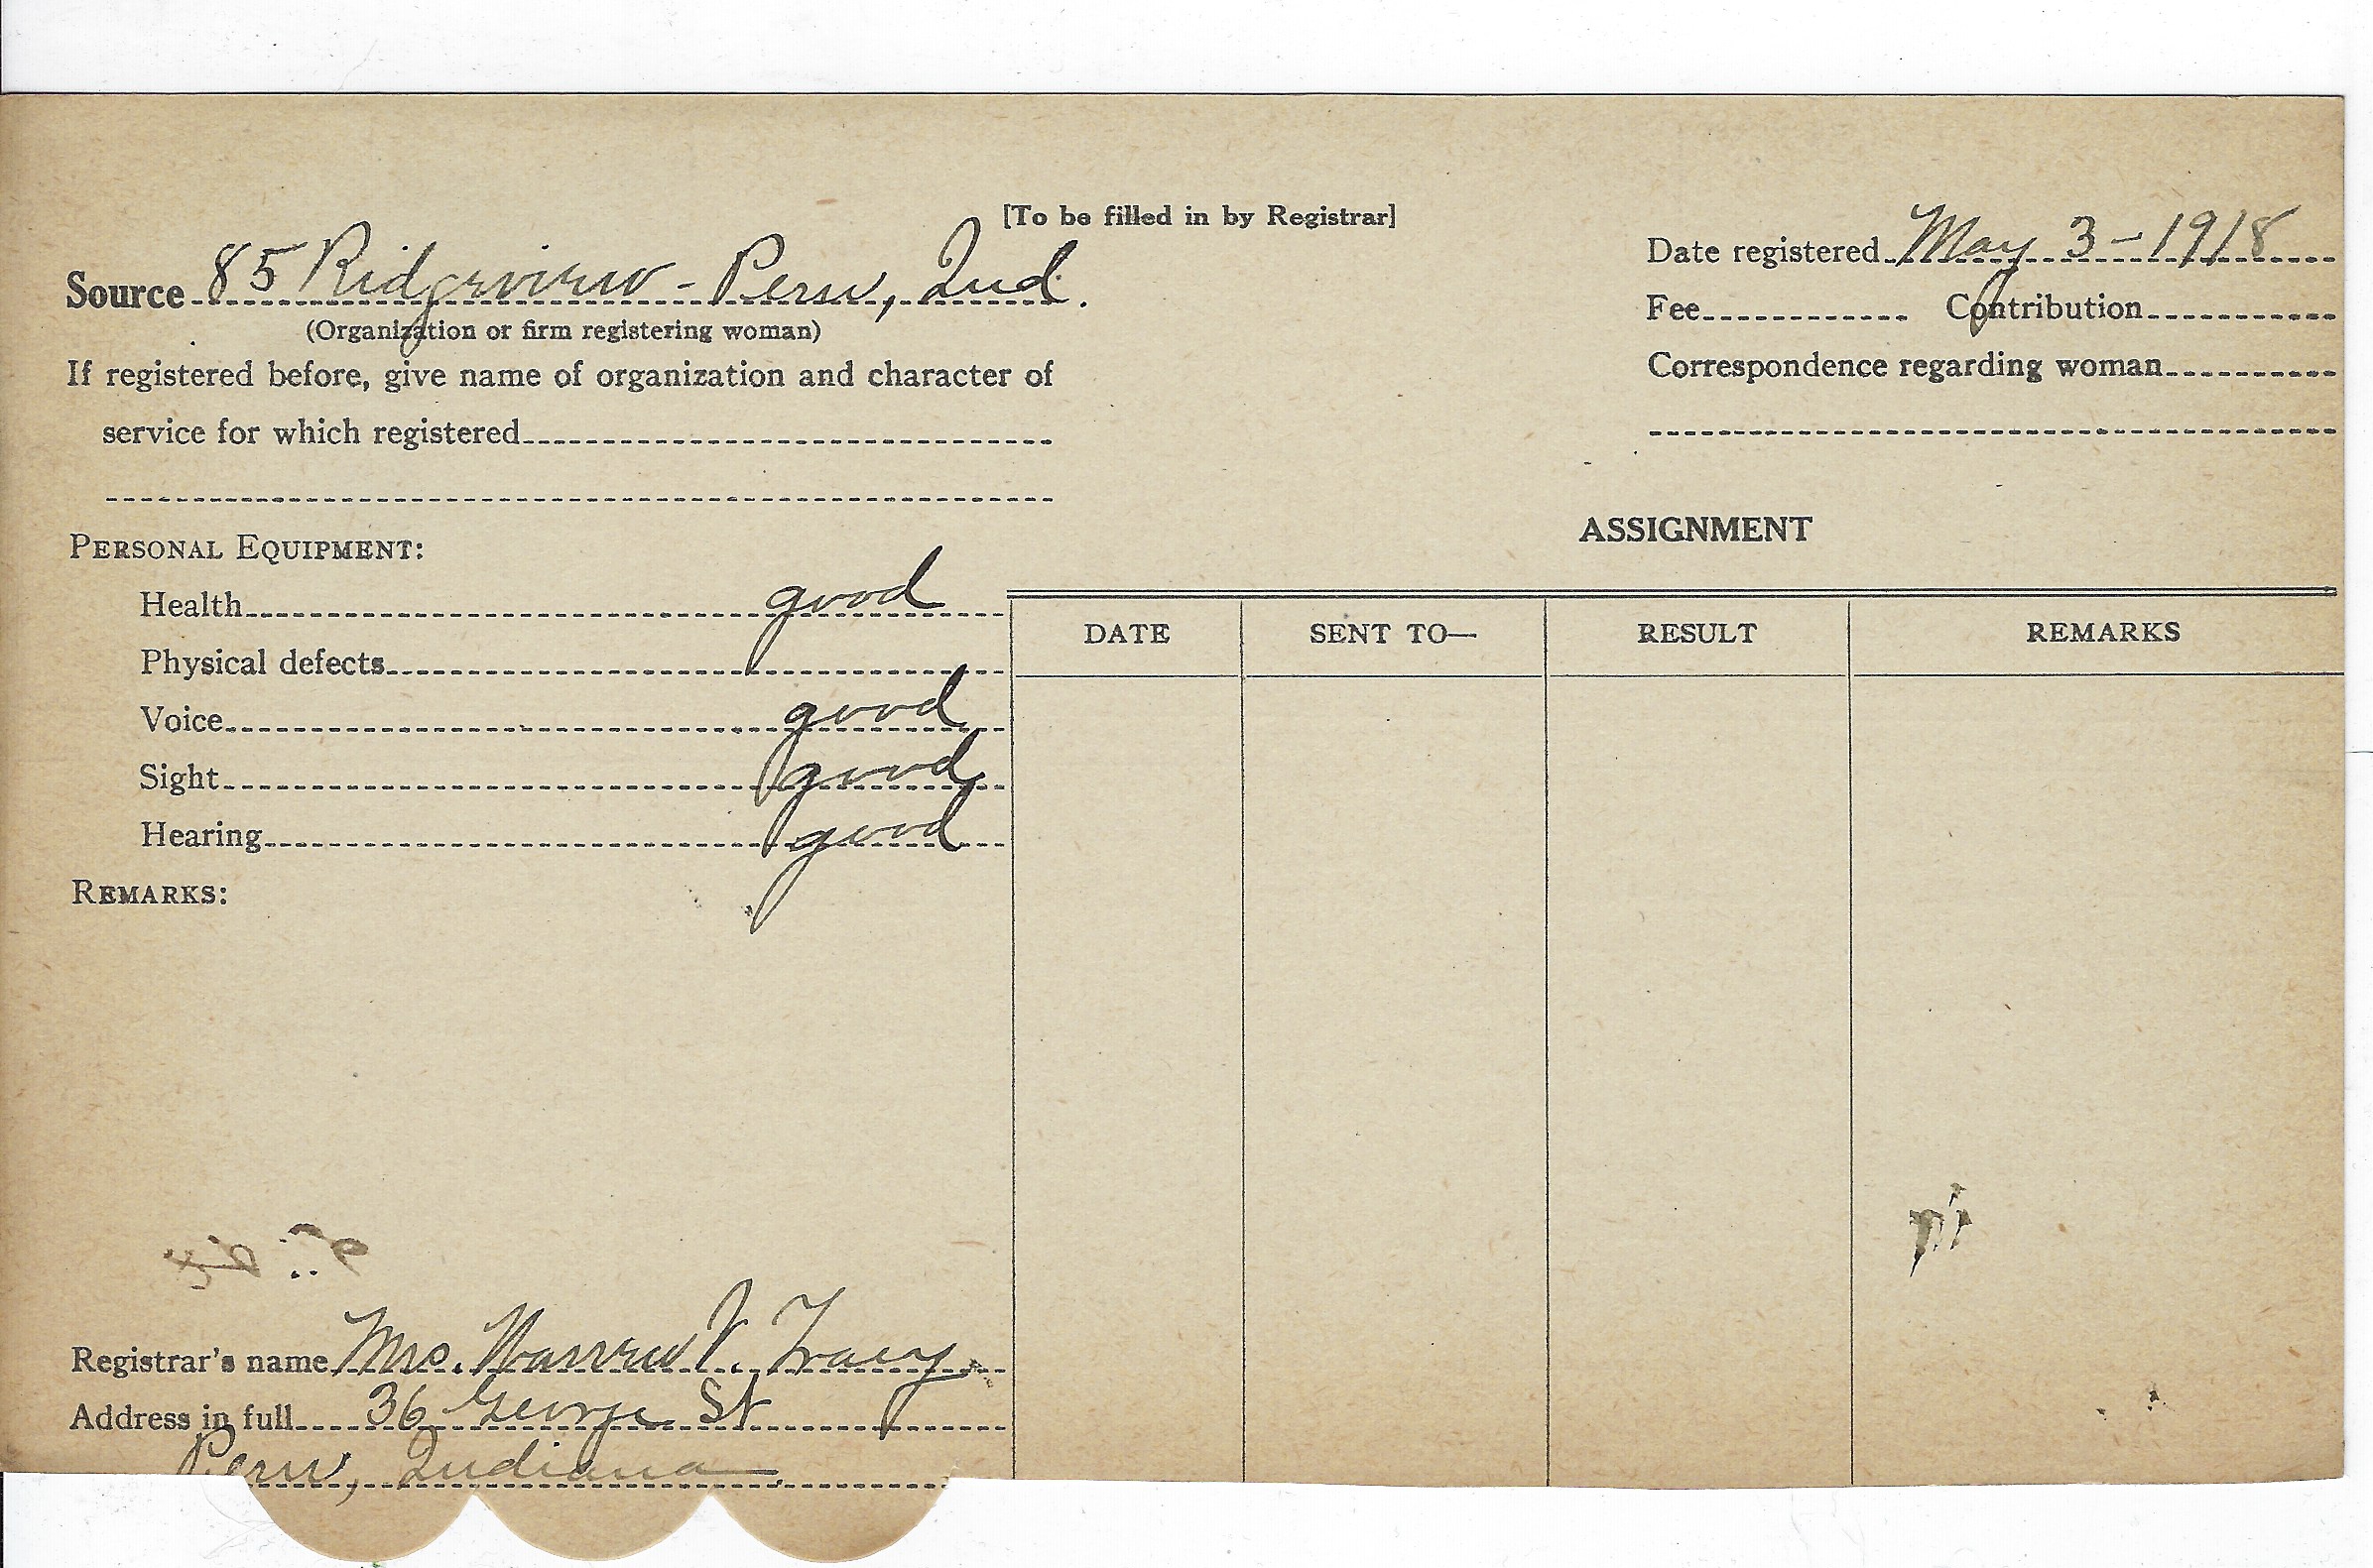 [To be filled in by Registrar]
Source 85 Ridgeview - Peru, Ind.
(Organization or firm registering woman)
If registered before, give name of organization and character of
service for which registered
PERSONAL EQUIPMENT:
Health good
Physical defects
Voice good
Sight good
Hearing good
REMARKS:
Registrar's name Mrs. Warren V. Tracy
Address in full 36 George St
Peru, Indiana
Date registered May 3-1918
Fee Contribution
Correspondence regarding woman
ASSIGNMENT
DATE SENT TO— RESULT REMARKS